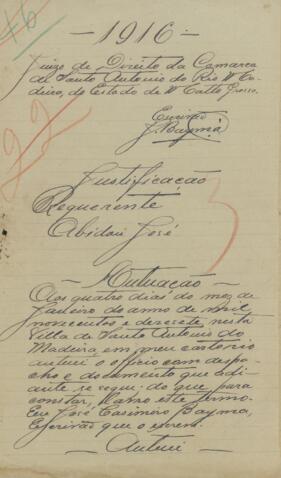 46
-1916-
Juizo de Direito da Comarca
de Santo Antonio do Rio Ma-
deira, do Estado de Matto Grosso.
Escrivão
J. Bayma
22
Justificação
Requerente
Abidão José
-Autuação-
Aos quatro dias do mez de
Janeiro do anno de mil
novecentos e dezesete, nesta
Villa de Santo Antonio do
Madeira, em meu cartorio
autuei o officio com despa-
cho e documento que adi-
ante se segui. do que para
constar, lavro este termo.
Eu José Casimiro Bayma,
Escrivão que o escrevi.
-Autuei-